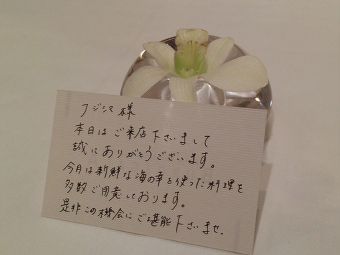 フジタ様
本日はご来店下さいまして
誠にありがとうございます。
今月は新鮮な海の幸を使った料理を
多数ご用意しております。
是非この機会にご堪能下さいませ.